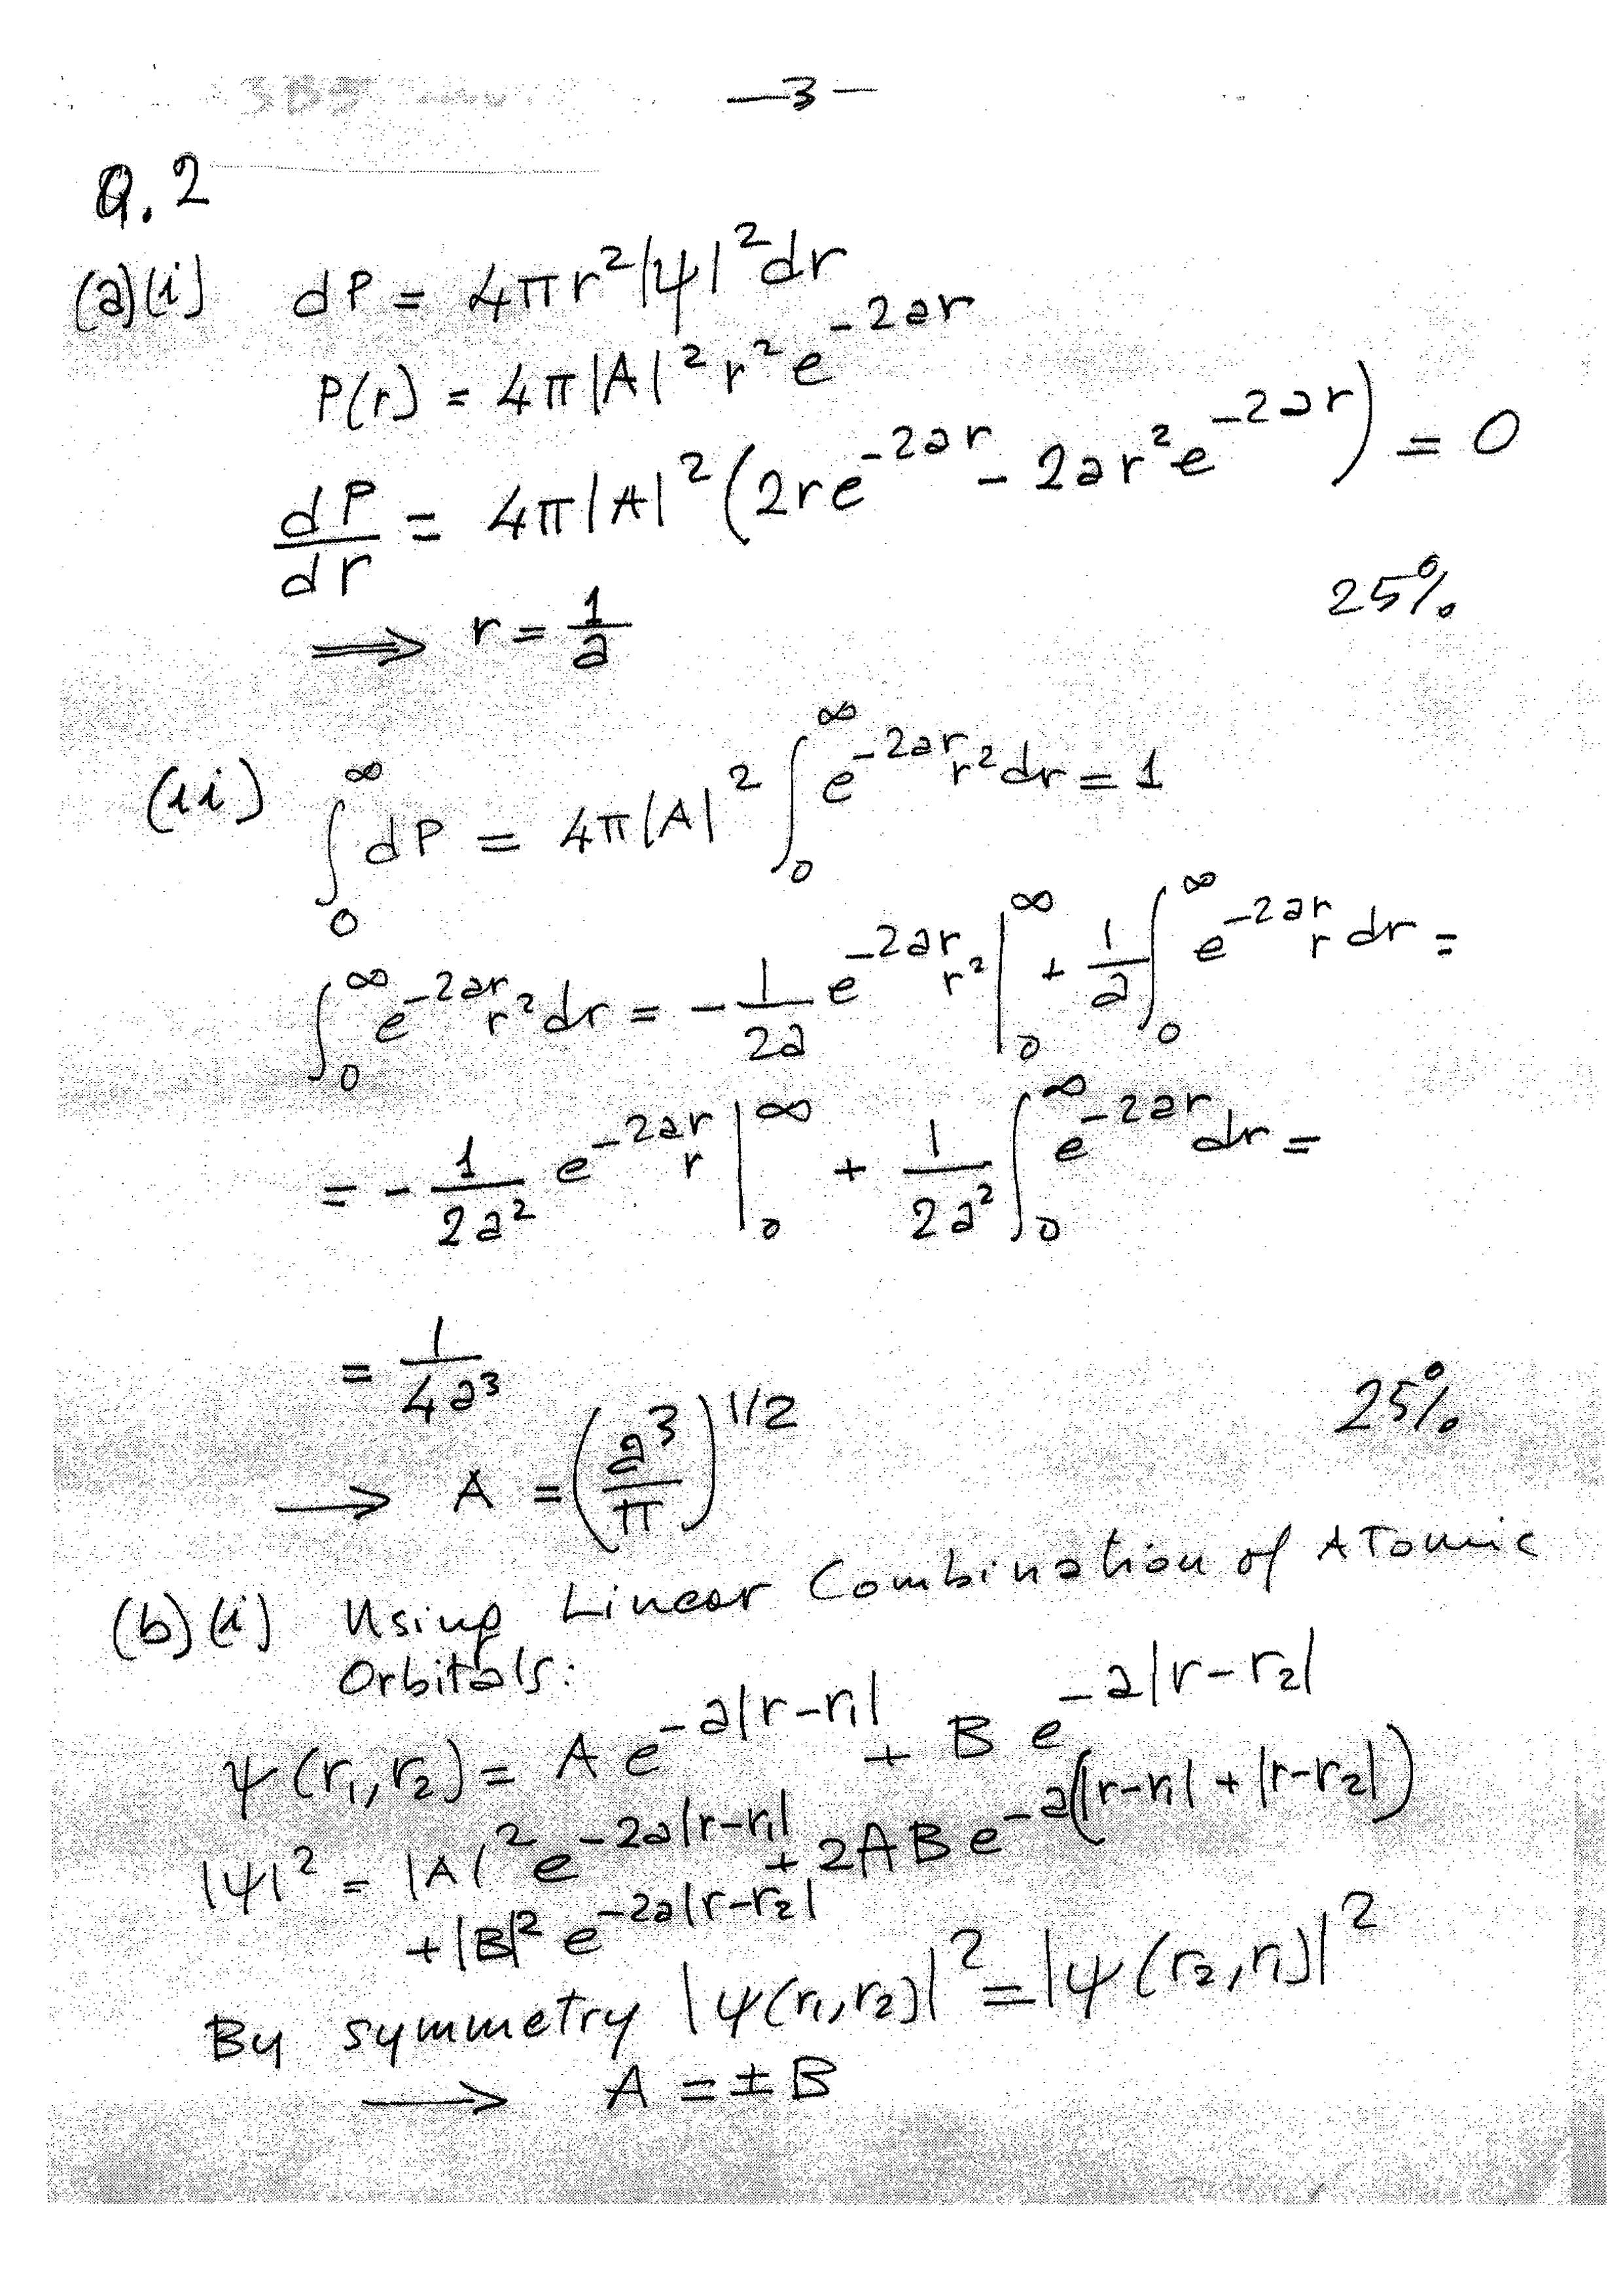 —3—
Q.2
(a)(i) dP = 4πr²|ψ|²dr
P(r) = 4π|A|²r²e^{-2ar}
dP/dr = 4π|A|²(2re^{-2ar} - 2ar²e^{-2ar}) = 0
⟹ r = 1/a 25%
(ii) ∫_0^∞ dP = 4π|A|² ∫_0^∞ e^{-2ar} r² dr = 1
∫_0^∞ e^{-2ar} r² dr = -1/2a e^{-2ar} r² |_0^∞ + 1/a ∫_0^∞ e^{-2ar} r dr =
= -1/2a² e^{-2ar} r |_0^∞ + 1/2a² ∫_0^∞ e^{-2ar} dr =
= 1/4a³ 25%
→ A = (a³/π)^{1/2}
(b)(i) Using Linear Combination of ATomic
Orbitals:
ψ(r₁,r₂) = A e^{-a|r-r₁|} + B e^{-a|r-r₂|}
|ψ|² = |A|² e^{-2a|r-r₁|} + 2AB e^{-a(|r-r₁| + |r-r₂|)}
+|B|² e^{-2a|r-r₂|}
By symmetry |ψ(r₁,r₂)|² = |ψ(r₂,r₁)|²
→ A = ± B